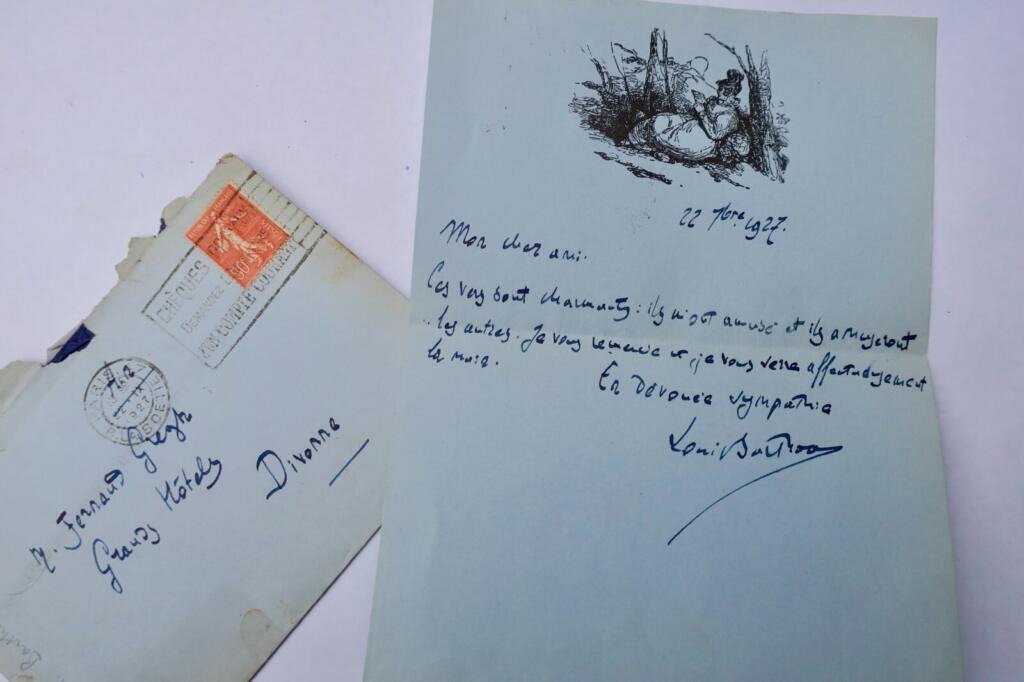 22 7bre 1927.
Mon cher ami.
Ces vers sont charmants : ils m'ont amusé et ils amuseront
les autres. Je vous remercie et je vous serre affectueusement
la main.
En dévouée sympathie
Louis Barthou
CHÈQUES
DEMANDEZ
UN COMPTE COURANT
90
PARIS
1927
M. Fernand Gregh
Grands Hôtels
Divonne